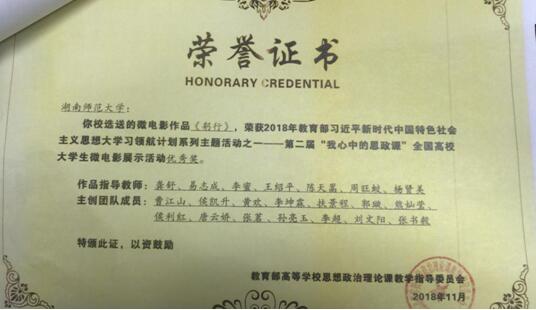 荣誉证书
HONORARY CREDENTIAL
湖南师范大学：
你校选送的微电影作品《躬行》，荣获2018年教育部习近平新时代中国特色社会
主义思想大学习领航计划系列主题活动之一——第二届“我心中的思政课”全国高校
大学生微电影展示活动优秀奖。
作品指导教师：龚舒、易志成、李蜜、王绍平、陈天嵩、周旺蛟、杨贤美
主创团队成员：曹江山、侯凯升、黄欢、李坤霖、扶景程、郭璇、熊灿莹、
侯利红、唐云娇、张茗、孙亮玉、李超、刘文阳、张书毅
特颁此证，以资鼓励
教育部高等学校思想政治理论课教学指导委员会
2018年11月